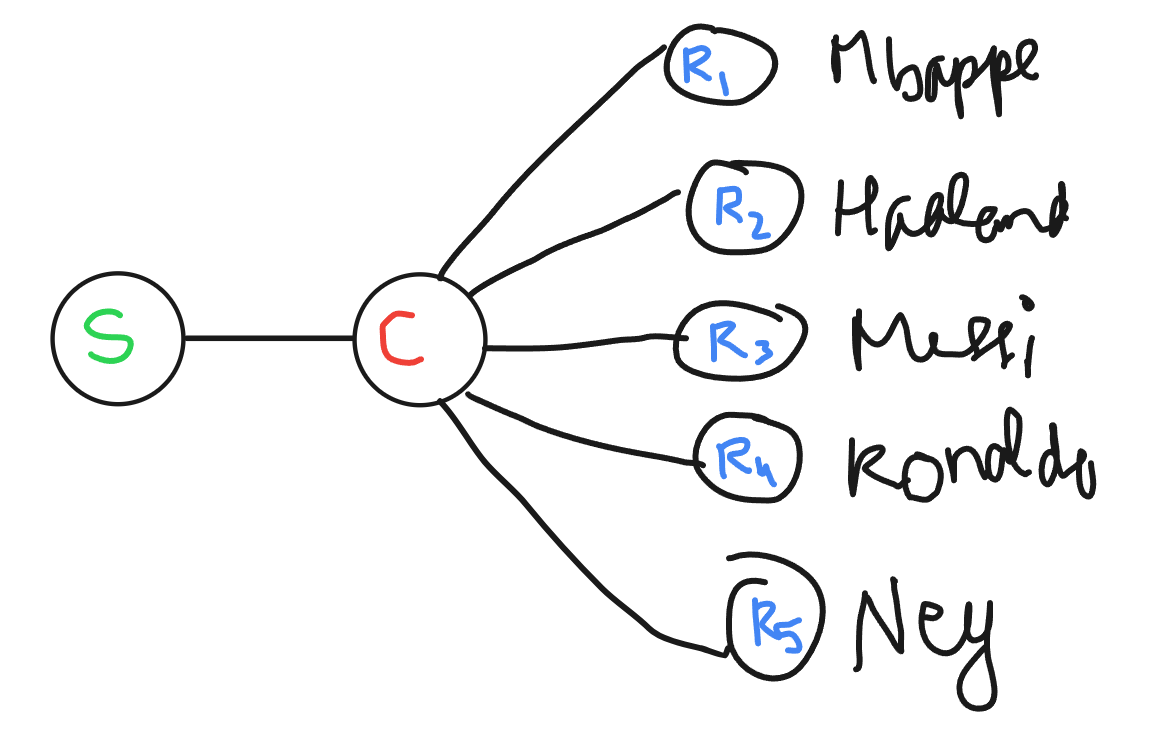 R1 Mbappe
R2 Haaland
S C R3 Messi
R4 Ronaldo
R5 Ney